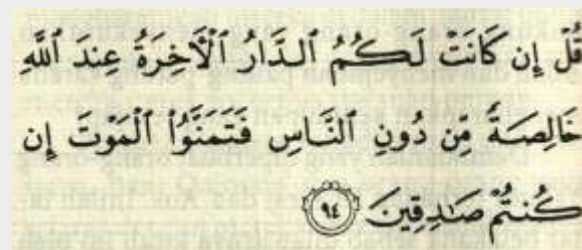 قُلْ إِن كَانَتْ لَكُمُ ٱلدَّارُ ٱلْأَخِرَةُ عِندَ ٱللَّهِ
خَالِصَةً مِّن دُونِ ٱلنَّاسِ فَتَمَنَّوُا۟ ٱلْمَوْتَ إِن
كُنتُمْ صَـٰدِقِينَ ٩٤